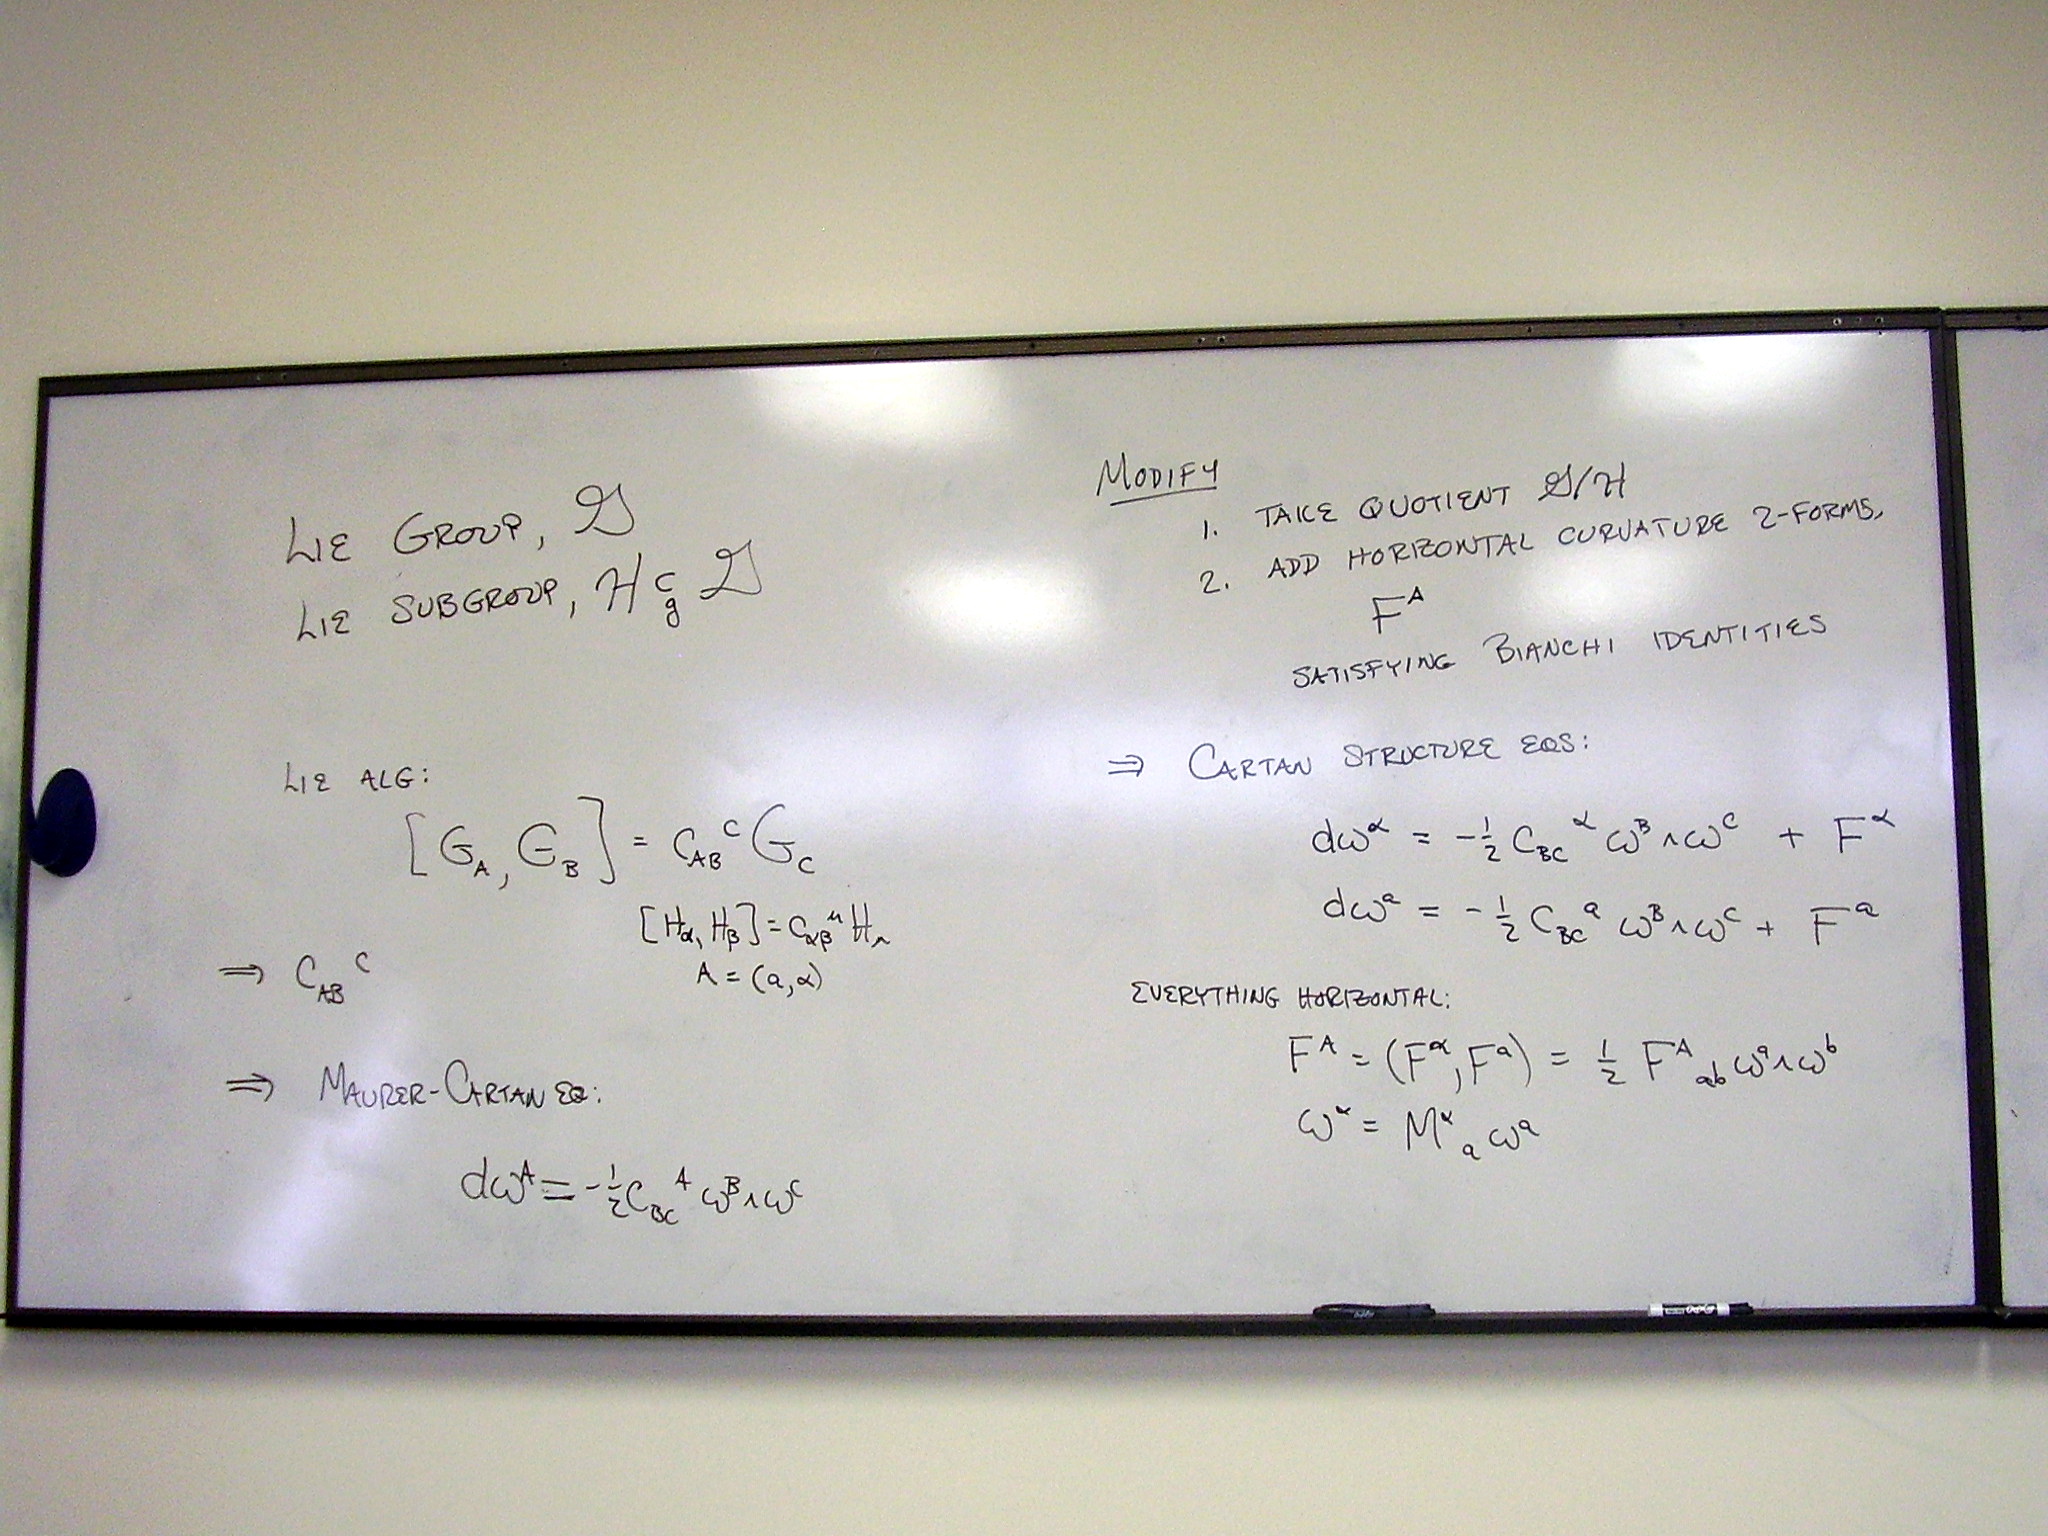 LIE GROUP, 𝒢
LIE SUBGROUP, ℋ ⊂_g 𝒢
LIE ALG:
[G_A, G_B] = C_AB^C G_C
[H_α, H_β] = C_αβ^μ H_μ
A = (a, α)
⇒ C_AB^C
⇒ MAURER-CARTAN EQ:
dω^A = -½ C_BC^A ω^B ∧ ω^C
MODIFY
1. TAKE QUOTIENT 𝒢/ℋ
2. ADD HORIZONTAL CURVATURE 2-FORMS,
F^A
SATISFYING BIANCHI IDENTITIES
⇒ CARTAN STRUCTURE EQS:
dω^α = -½ C_BC^α ω^B ∧ ω^C + F^α
dω^a = -½ C_BC^a ω^B ∧ ω^C + F^a
EVERYTHING HORIZONTAL:
F^A = (F^α, F^a) = ½ F^A_ab ω^a ∧ ω^b
ω^α = M^α_a ω^a